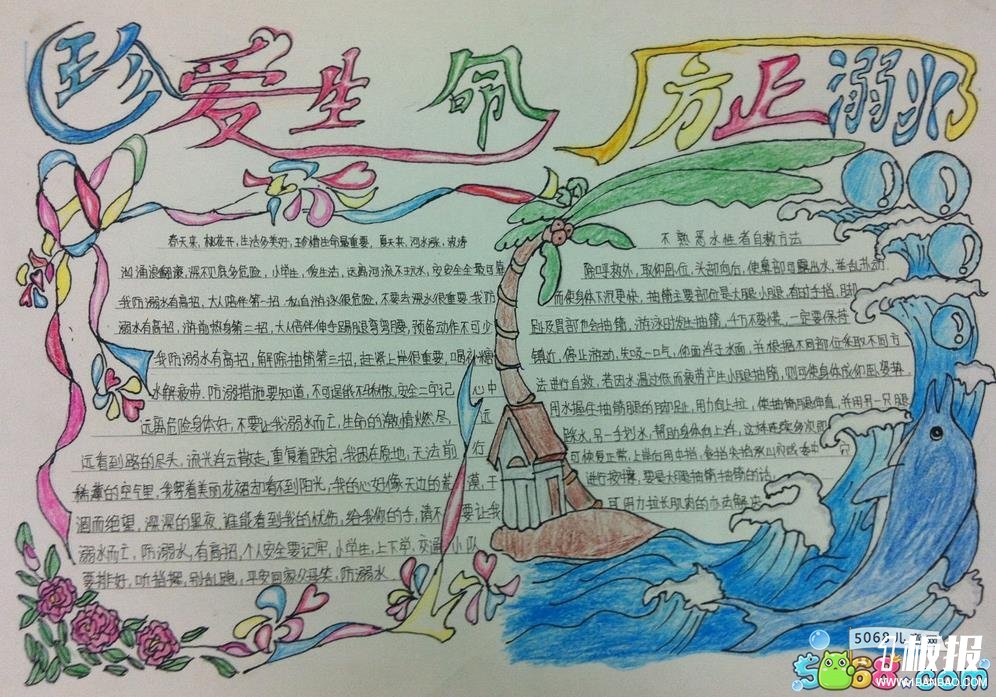 珍爱生命
方止溺水
春天来，桃花开，生活多美好，珍惜生命最重要，夏天来，河水涨，波涛
汹涌浪翻滚，深不见底多危险，小学生，爱生活，远离河流不玩水，安安全全最可靠
我防溺水有高招，大人陪伴第一招，私自游泳很危险，不要去深水很重要，我防
溺水有高招，游前热身第二招，大人陪伴伸手踢腿弯弯腰，预备动作不可少
我防溺水有高招，解除抽筋第三招，赶紧上岸很重要，喝补糖
水解疲劳，防溺措施要知道，不可逞能不骄傲，安全一牢记，心中
远离危险身体好，不要让我溺水而亡，生命的激情燃尽，远
远看到路的尽头，流光浮云散走，重复着跌宕，我困在原地，无法前行
稀薄的空气里，我努着美丽花裙却看不到阳光，我的心好像天边的荒漠，干
涸而绝望，深深的黑夜，谁能看到我的忧伤，给我你的手，请不要让我
溺水而亡，防溺水，有高招，个人安全要记牢，小学生，上下学，交通小队
要排好，听指挥，别乱跑，平安回家父母笑，防溺水
不熟悉水性者自救方法
除呼救外，取仰卧位，头部向后，使鼻部可露出水，举乱扑动
而使身体下沉更快，抽筋主要部位是大腿小腿，有时手指，脚
趾及胃部也会抽筋，游泳时发生抽筋，千万不要慌，一定要保持
镇近，停止游动，先吸一口气，仰面浮于水面，并根据不同部位采取不同方
法进行自救，若因水温过低而疲劳产生小腿抽筋，则可使身体成仰卧姿势
用水握住抽筋腿的脚趾，用力向上拉，使抽筋腿伸直，并用另一只腿
踩水，另一手划水，帮助身体向上浮，这样连续多次即
可恢复正常，上岸后用中指，食指尖掐承山穴或委中穴
进行按摩，要是大腿抽筋抽筋的话，
可用力拉长肌肉的办法解决
5068儿童网
5068.com
板报
WWW.1BANBAO.COM